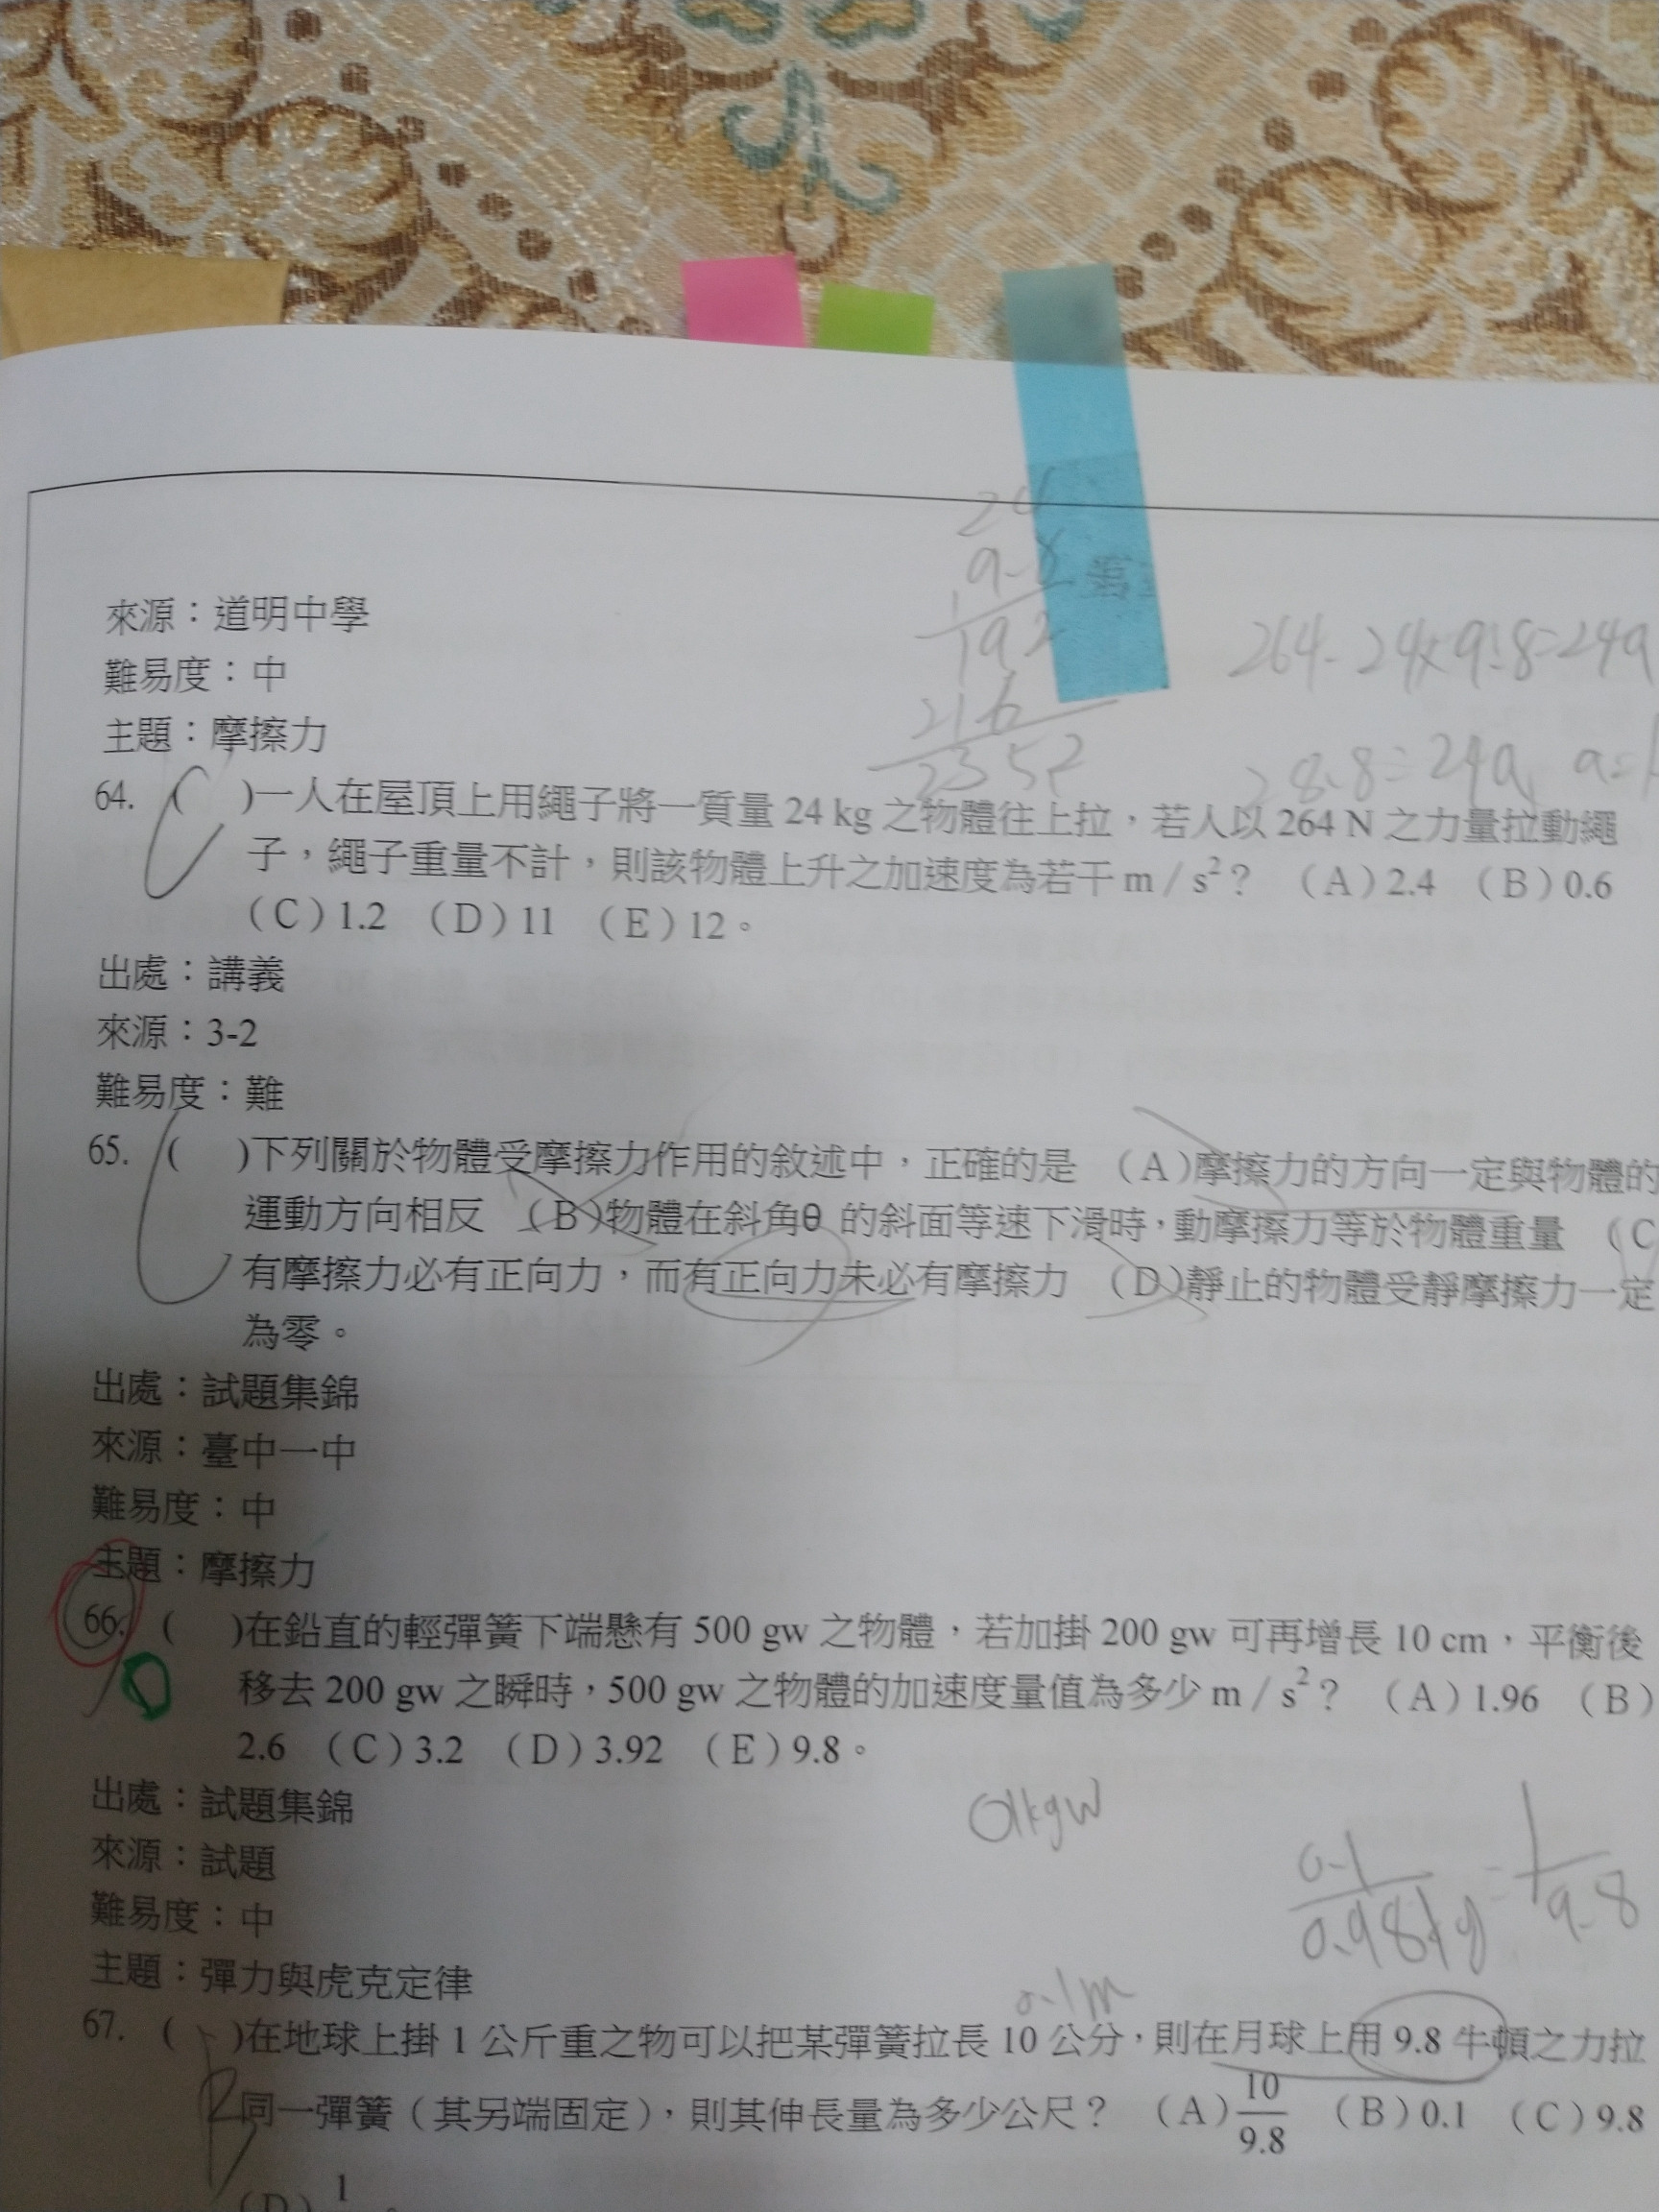 24
9.8
192
216
2352
264-24×9.8=24a
28.8=24a a=1
來源：道明中學
難易度：中
主題：摩擦力
64. ( C )一人在屋頂上用繩子將一質量 24 kg 之物體往上拉，若人以 264 N 之力量拉動繩
子，繩子重量不計，則該物體上升之加速度為若干 m / s²？ （A）2.4 （B）0.6
（C）1.2 （D）11 （E）12。
出處：講義
來源：3-2
難易度：難
65. ( C )下列關於物體受摩擦力作用的敘述中，正確的是 （A）摩擦力的方向一定與物體的
運動方向相反 （B）物體在斜角θ 的斜面等速下滑時，動摩擦力等於物體重量 （C
有摩擦力必有正向力，而有正向力未必有摩擦力 （D）靜止的物體受靜摩擦力一定
為零。
出處：試題集錦
來源：臺中一中
難易度：中
主題：摩擦力
66. ( )在鉛直的輕彈簧下端懸有 500 gw 之物體，若加掛 200 gw 可再增長 10 cm，平衡後
移去 200 gw 之瞬時，500 gw 之物體的加速度量值為多少 m / s²？ （A）1.96 （B）
2.6 （C）3.2 （D）3.92 （E）9.8。
出處：試題集錦
來源：試題
難易度：中
主題：彈力與虎克定律
0.1m
67. ( B )在地球上掛 1 公斤重之物可以把某彈簧拉長 10 公分，則在月球上用 9.8 牛頓之力拉
同一彈簧（其另端固定），則其伸長量為多少公尺？ （A）10/9.8 （B）0.1 （C）9.8
（D）1